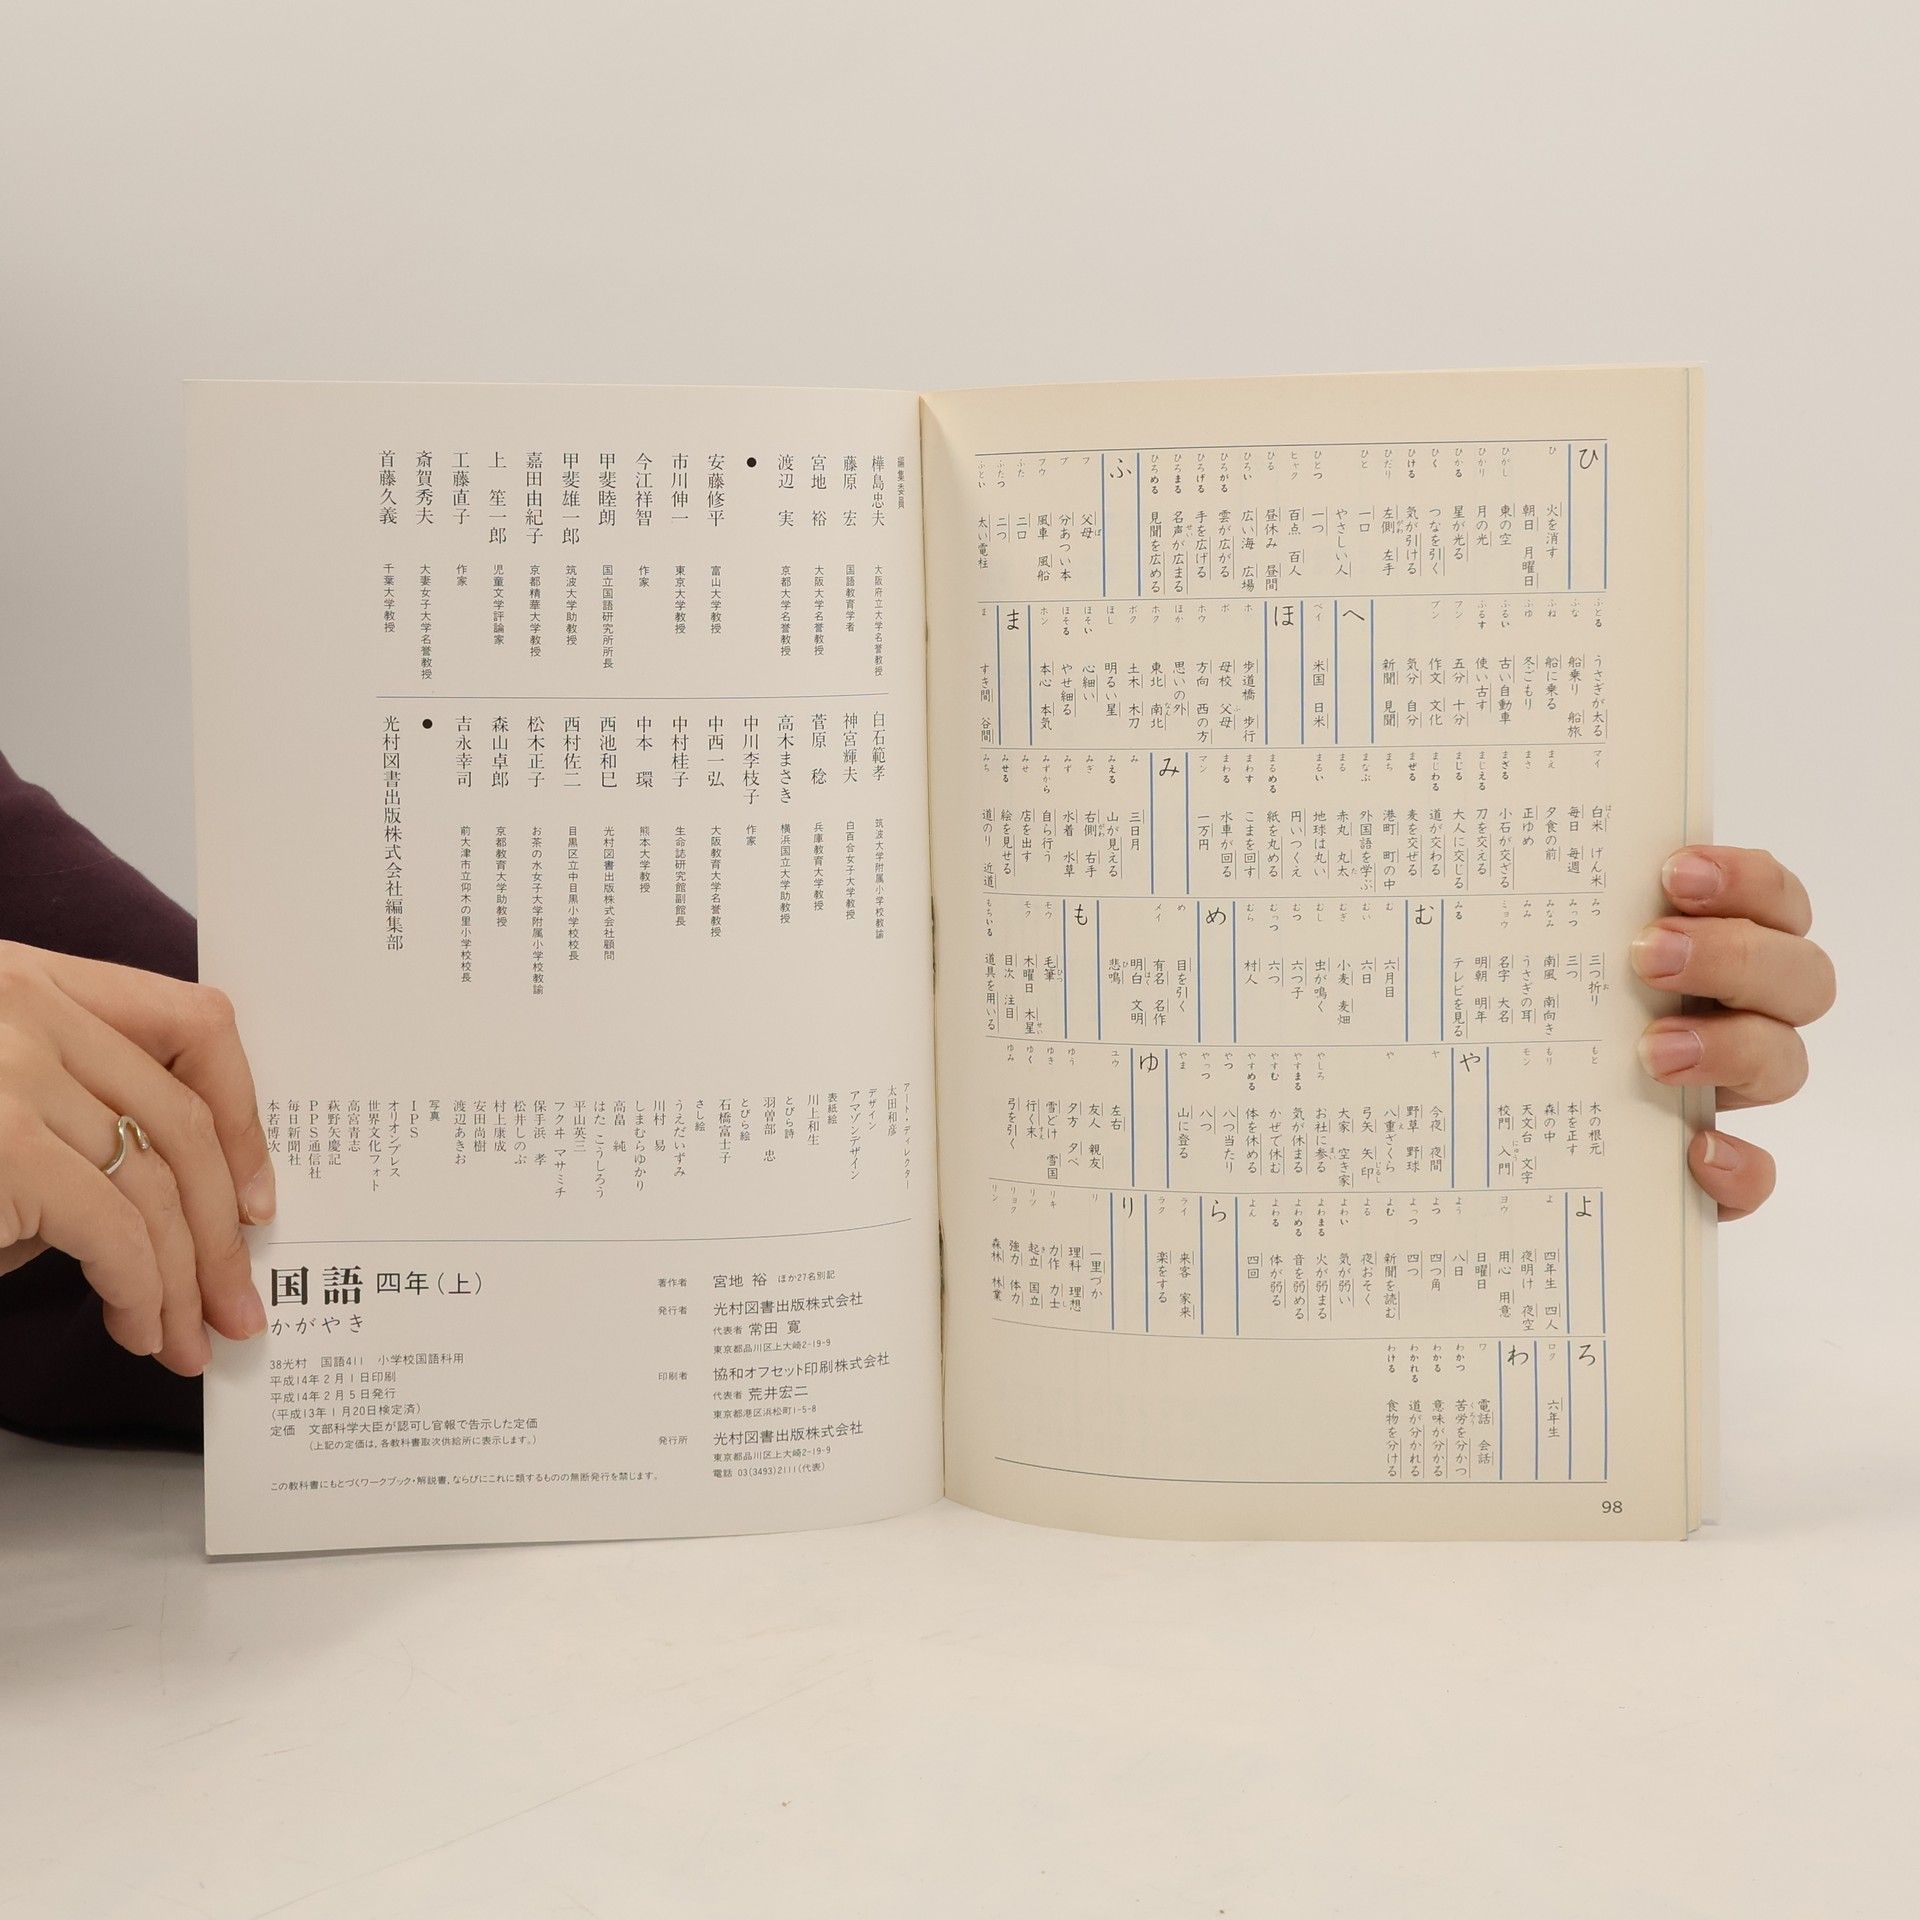 ひ
ひ 火を消す
朝日 月曜日
ひがし 東の空
ひかり 月の光
ひかる 星が光る
ひく つなを引く
ひける 気が引ける
ひだり 左側 左手
ひと 一口
やさしい人
ひとつ 一つ
ヒャク 百点 百人
ひる 昼休み 昼間
ひろい 広い海 広場
ひろがる 雲が広がる
ひろげる 手を広げる
ひろまる 名声が広まる
ひろめる 見聞を広める
ふ
フ 父母
ブ 分あつい本
フウ 風車 風船
ふた 二口
ふたつ 二つ
ふとい 太い電柱
ふとる うさぎが太る
ふな 船乗り 船旅
ふね 船に乗る
ふゆ 冬ごもり
ふるい 古い自動車
ふるす 使い古す
フン 五分 十分
ブン 作文 文化
気分 自分
新聞 見聞
へ
ベイ 米国 日米
ほ
ホ 歩道橋 歩行
ボ 母校 父母
ホウ 方向 西の方
ほか 思いの外
ホク 東北 南北
ボク 土木 木刀
ほし 明るい星
ほそい 心細い
ほそる やせ細る
ホン 本心 本気
ま
ま すき間 谷間
マイ 白米 げん米
毎日 毎週
まえ 夕食の前
まさ 正ゆめ
まざる 小石が交ざる
まじえる 刀を交える
まじる 大人に交じる
まじわる 道が交わる
まぜる 麦を交ぜる
まち 港町 町の中
まなぶ 外国語を学ぶ
まる 赤丸 丸太
まるい 地球は丸い
円いつくえ
まるめる 紙を丸める
まわす こまを回す
まわる 水車が回る
マン 一万円
み
み 三日月
みえる 山が見える
みぎ 右側 右手
みず 水着 水草
みずから 自ら行う
みせ 店を出す
みせる 絵を見せる
みち 道のり 近道
みつ 三つ折り
みっつ 三つ
みなみ 南風 南向き
みみ うさぎの耳
ミョウ 名字 大名
明朝 明年
みる テレビを見る
む
む 六月目
むい 六日
むぎ 小麦 麦畑
むし 虫が鳴く
むつ 六つ子
むっつ 六つ
むら 村人
め
め 目を引く
メイ 有名 名作
明白 文明
悲鳴
も
モウ 毛筆
モク 木曜日 木星
目次 注目
もちいる 道具を用いる
もと 木の根元
本を正す
もり 森の中
モン 天文台 文字
校門 入門
や
ヤ 今夜 夜間
野草 野球
や 八重ざくら
弓矢 矢印
大家 空き家
やしろ お社に参る
やすまる 気が休まる
やすむ かぜで休む
やすめる 体を休める
やつ 八つ当たり
やっつ 八つ
やま 山に登る
ゆ
ユウ 左右
友人 親友
ゆう 夕方 夕べ
ゆき 雪どけ 雪国
ゆく 行く末
ゆみ 弓を引く
よ
よ 四年生 四人
夜明け 夜空
ヨウ 用心 用意
日曜日
よう 八日
よつ 四つ角
よっつ 四つ
よむ 新聞を読む
よる 夜おそく
よわい 気が弱い
よわまる 火が弱まる
よわめる 音を弱める
よわる 体が弱る
よん 四回
ら
ライ 来客 家来
ラク 楽をする
り
リ 一里づか
理科 理想
リキ 力作 力士
リツ 起立 国立
リョク 強力 体力
リン 森林 林業
ろ
ロク 六年生
わ
ワ 電話 会話
わかつ 苦労を分かつ
わかる 意味が分かる
わかれる 道が分かれる
わける 食物を分ける
98
編集委員
樺島忠夫 大阪府立大学名誉教授
藤原 宏 国語教育学者
宮地 裕 大阪大学名誉教授
渡辺 実 京都大学名誉教授
●
安藤修平 富山大学教授
市川伸一 東京大学教授
今江祥智 作家
甲斐睦朗 国立国語研究所所長
甲斐雄一郎 筑波大学助教授
嘉田由紀子 京都精華大学教授
上 笙一郎 児童文学評論家
工藤直子 作家
斎賀秀夫 大妻女子大学名誉教授
首藤久義 千葉大学教授
白石範孝 筑波大学附属小学校教諭
神宮輝夫 白百合女子大学教授
菅原 稔 兵庫教育大学教授
高木まさき 横浜国立大学助教授
中川李枝子 作家
中西一弘 大阪教育大学名誉教授
中村桂子 生命誌研究館副館長
中本 環 熊本大学教授
西池和巳 光村図書出版株式会社顧問
西村佐二 目黒区立中目黒小学校校長
松木正子 お茶の水女子大学附属小学校教諭
森山卓郎 京都教育大学助教授
吉永幸司 前大津市立仰木の里小学校校長
●
光村図書出版株式会社編集部
アート・ディレクター
太田和彦
デザイン
アマゾンデザイン
表紙絵
川上和生
とびら詩
羽曽部 忠
とびら絵
石橋富士子
さし絵
うえだいずみ
川村 易
しまむらゆかり
高畠 純
はた こうしろう
平山英三
フクヰ マサミチ
保手浜 孝
松井しのぶ
村上康成
安田尚樹
渡辺あきお
写真
IPS
オリオンプレス
世界文化フォト
高宮青志
萩野矢慶記
PPS通信社
毎日新聞社
本若博次
国語 四年（上）
かがやき
38光村 国語411 小学校国語科用
平成14年2月1日印刷
平成14年2月5日発行
（平成13年1月20日検定済）
定価 文部科学大臣が認可し官報で告示した定価
（上記の定価は，各教科書取次供給所に表示します。）
著作者 宮地 裕 ほか27名別記
発行者 光村図書出版株式会社
代表者 常田 寛
東京都品川区上大崎2-19-9
印刷者 協和オフセット印刷株式会社
代表者 荒井宏二
東京都港区浜松町1-5-8
発行所 光村図書出版株式会社
東京都品川区上大崎2-19-9
電話 03(3493)2111(代表)
この教科書にもとづくワークブック・解説書，ならびにこれに類するものの無断発行を禁じます。